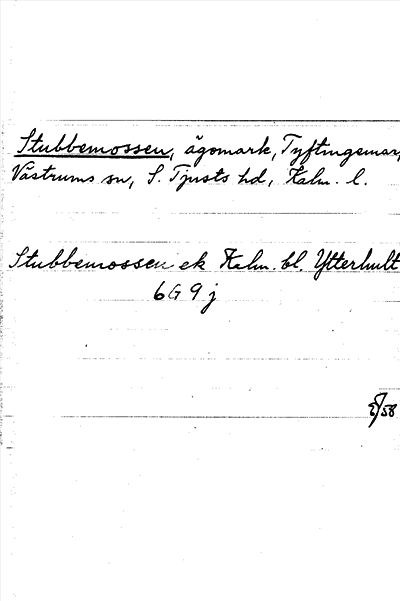 Stubbemossen, ägomark, Tyftingemar,
Västrums sn, S. Tjusts hd, Kalm. l.
Stubbemossen ek Kalm. bl. Ytterhult
6G 9 j
58